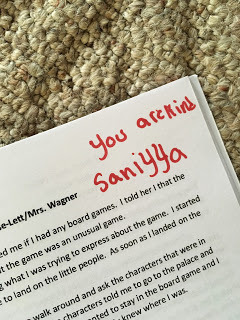 You are kind
Saniyya
se-Lett/Mrs. Wagner
ed me if I had any board games. I told her I that the
ut the game was an unusual game.
ng what I was trying to express about the game. I started
e to land on the little people. As soon as I landed on the
walk around and ask the characters that were in
characters told me to go to the palace and
nted to stay in the board game and I
knew where I was.